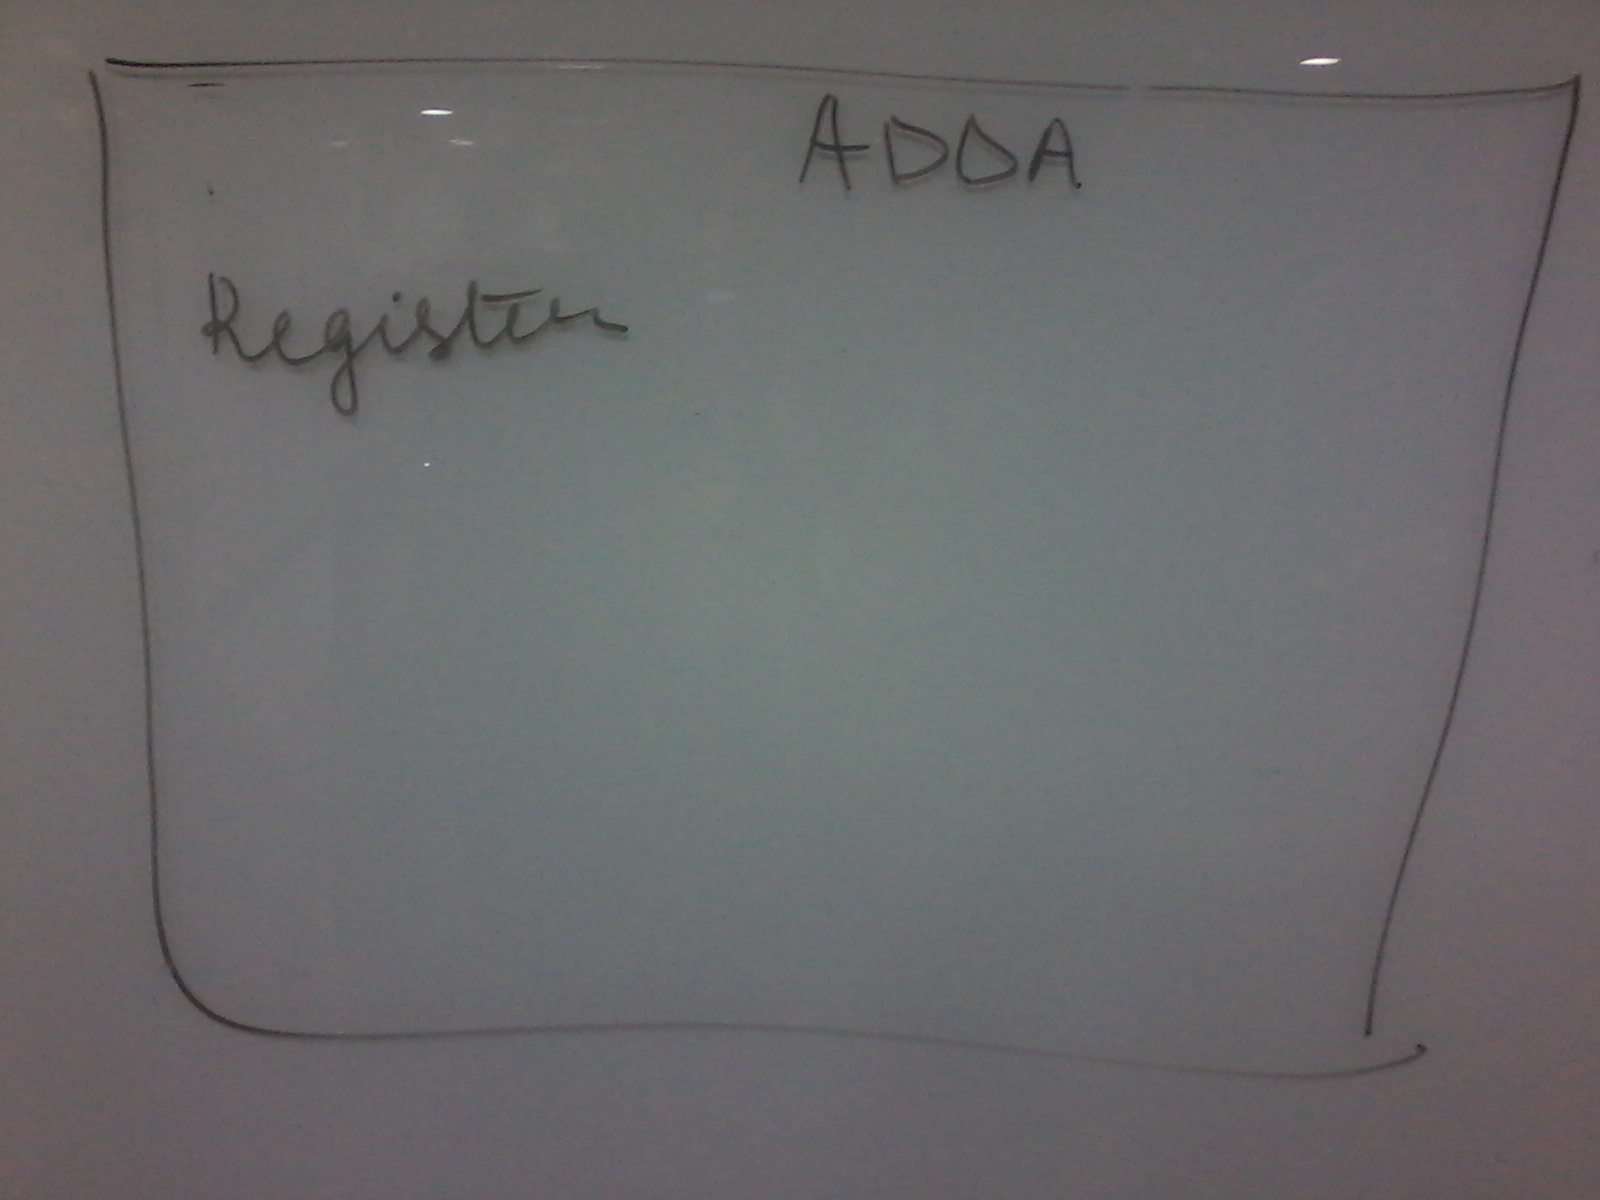 ADDA
Register